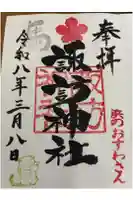 奉拝
諏訪神社
浜のおすわさん
令和八年三月八日